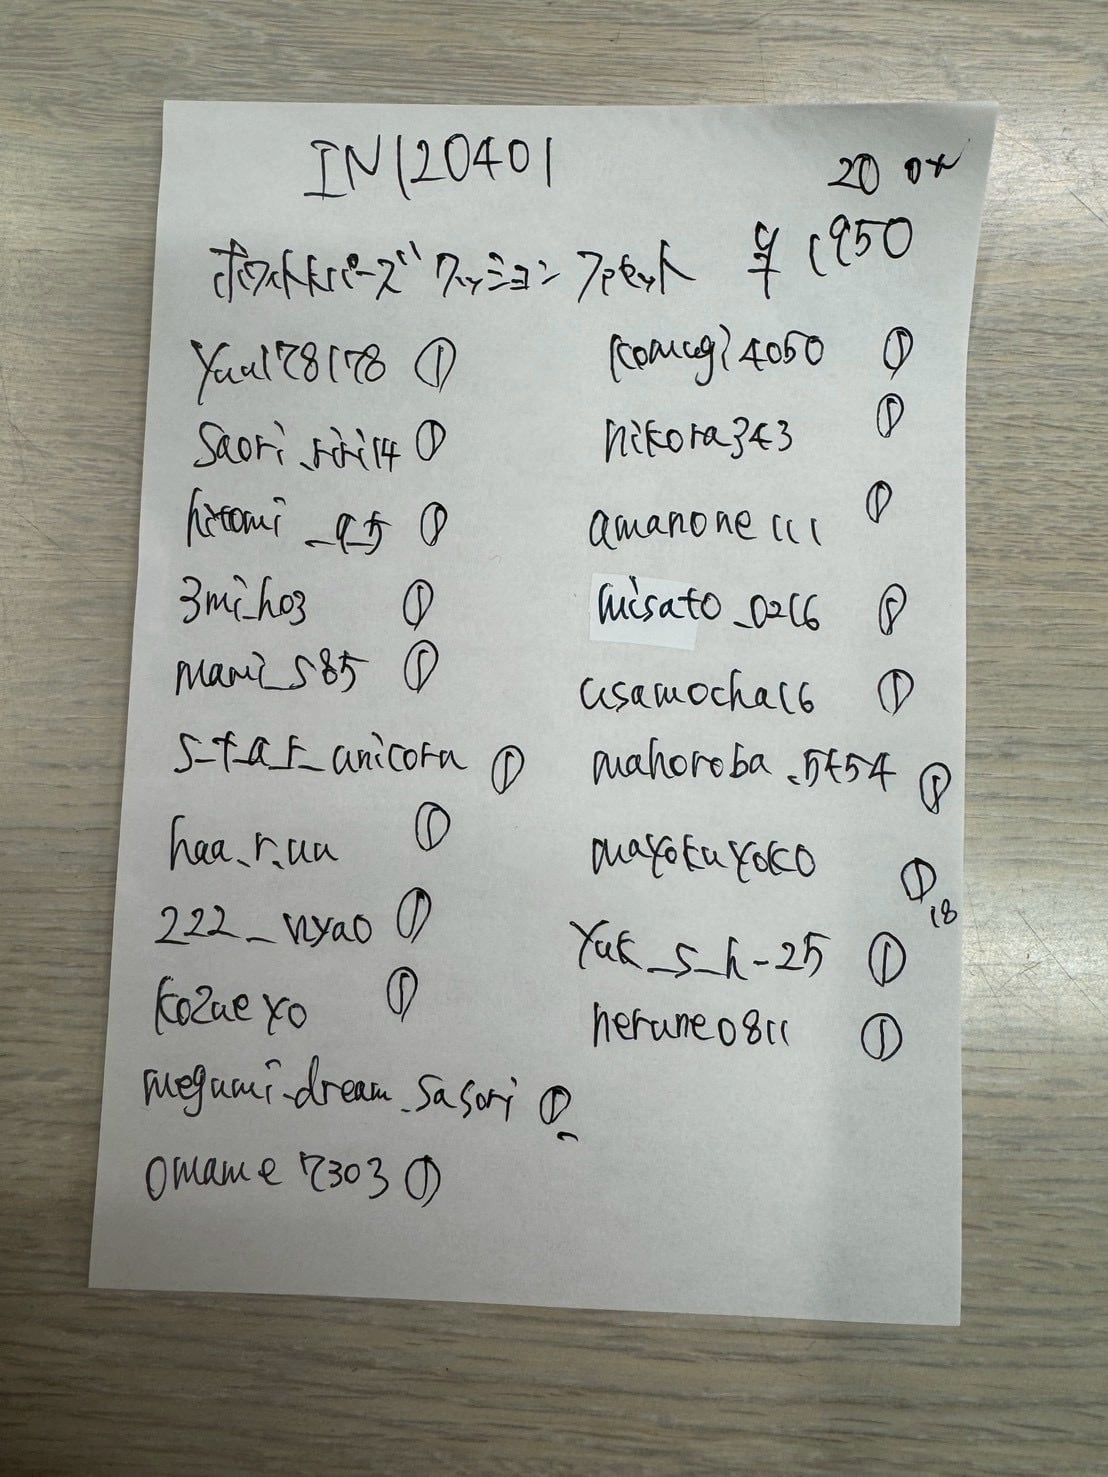 IN120401
20 ox
ホワイトトパーズ クッション ファセット ¥1950
yuu178178 ①
saori_riri14 ①
hitomi_9_5 ①
3mi_ho3 ①
mami_s85 ①
s_t_a_r_unicorn ①
haa_r_uu ①
222_nyao ①
kozueyo ①
megumi_dream_sasori ①
omame7303 ①
komugi4050 ①
nikora343 ①
amanone111 ①
misato_0216 ①
usamocha16 ①
mahoroba_5454 ①
mayokuyoko ①
18
yuk_s_h-25 ①
nerune0811 ①